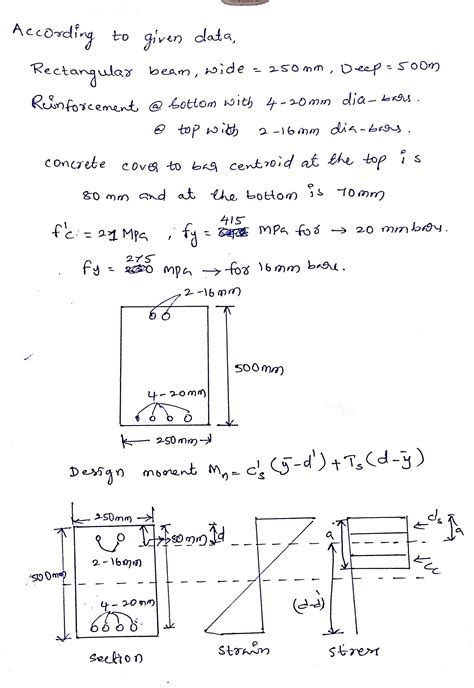 According to given data,
Rectangular beam, wide = 250mm, Deep = 500m
Reinforcement @ bottom with 4-20mm dia-bars.
@ top with 2-16mm dia-bars.
concrete cover to bar centroid at the top is
80 mm and at the bottom is 70mm
415
f'c = 21 MPa , fy = MPa for → 20 mm bars.
275
fy = mpa → for 16mm bars.
2-16mm
500mm
4-20mm
250mm
Design moment Mn = C's (ȳ-d') + Ts (d-ȳ)
250mm
80mm
d
a
ds
ȳ
a
2-16mm
Cc
500mm
4-20mm
(d-d')
section
strain
stress